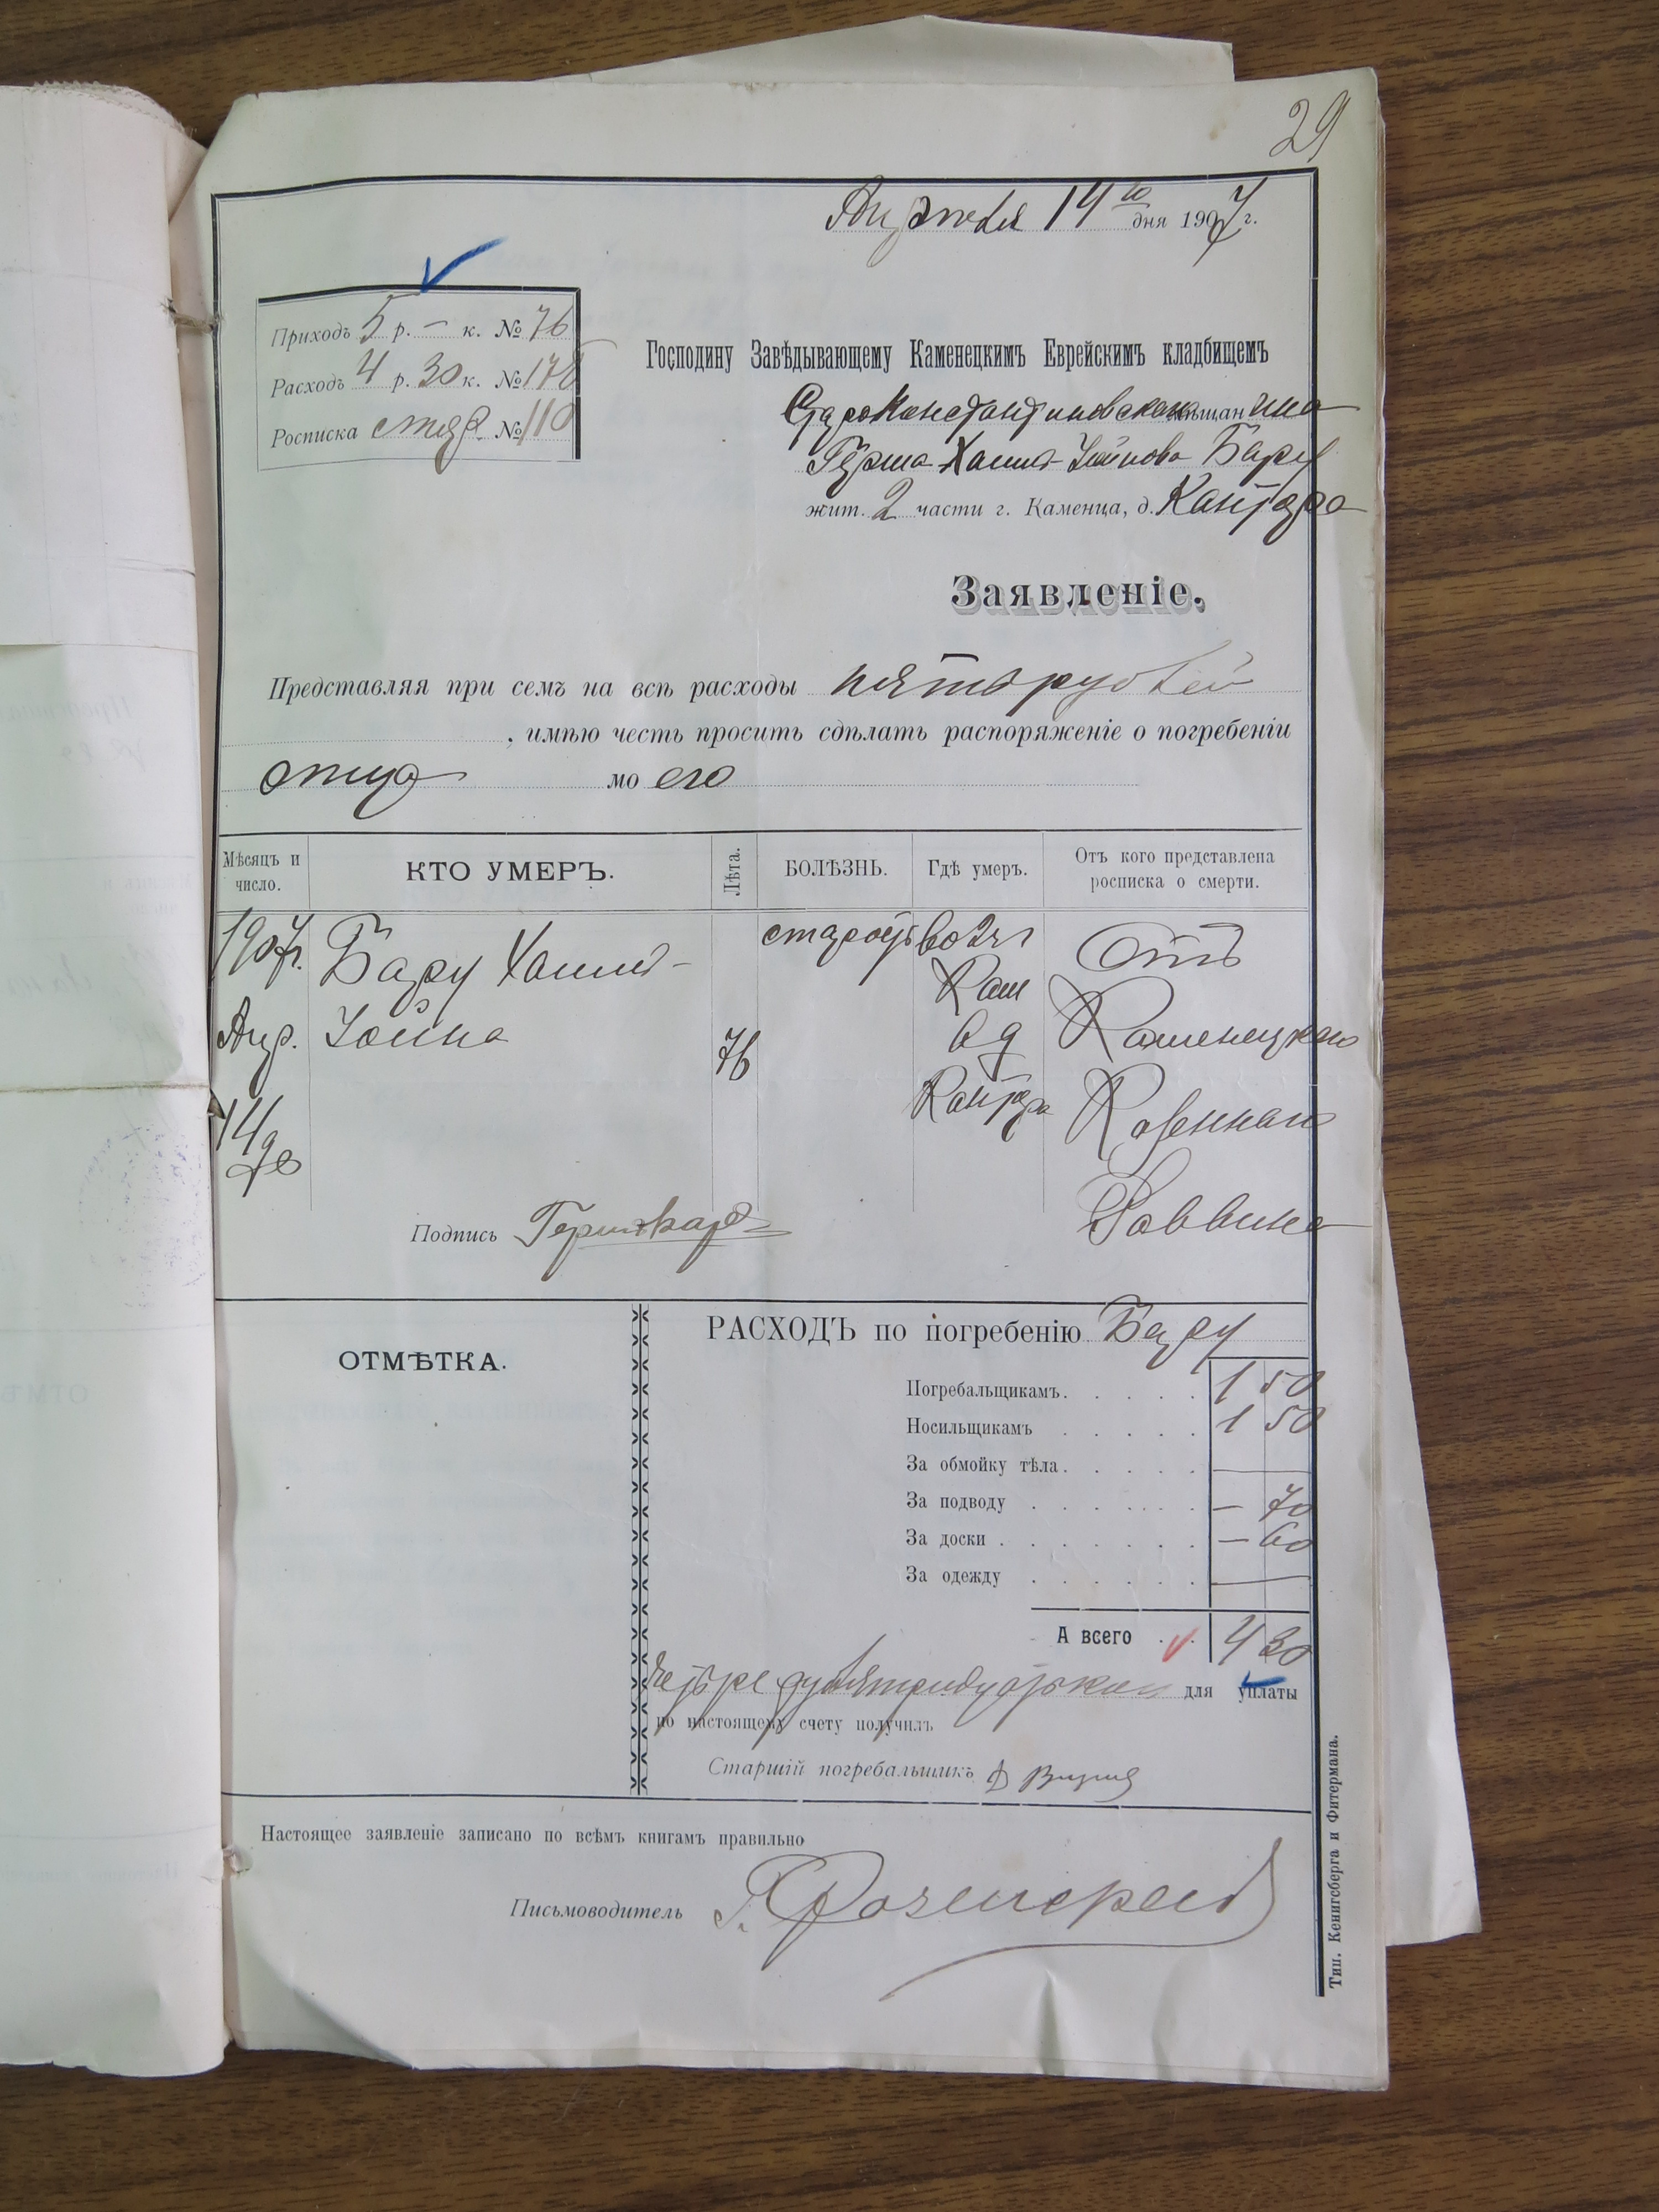 29
Апрѣля 14го дня 1907 г.
Приходъ 5 р. – к. № 76
Расходъ 4 р. 30 к. № 178
Росписка № 110
Господину Завѣдывающему Каменецкимъ Еврейскимъ кладбищемъ
Староконстантиновскаго мѣщанина
Герша Хаимъ-Іойнова Бару
жит. 2 части г. Каменца, д. Кантора
Заявленіе.
Представляя при семъ на всѣ расходы пять рублей
, имѣю честь просить сдѣлать распоряженіе о погребеніи
отца моего
Мѣсяцъ и число. КТО УМЕРЪ. Лѣта. БОЛѢЗНЬ. Гдѣ умеръ. Отъ кого представлена росписка о смерти.
1907 г. Бару Хаимъ- старость во 2 ч г Отъ
Кам
Апр. Іойна 76 в д Каменецкаго
14 Кантора Казеннаго
Раввина
Подпись
РАСХОДЪ по погребенію Бару
ОТМѢТКА.
Погребальщикамъ. 1 50
Носильщикамъ 1 50
За обмойку тѣла. —
За подводу – 70
За доски – 60
За одежду —
А всего 4 30
Четыре руб тридцать коп для уплаты
по настоящему счету получилъ
Старшій погребальщикъ
Настоящее заявленіе записано по всѣмъ книгамъ правильно
Письмоводитель
Тип. Кенигсберга и Фитермана.